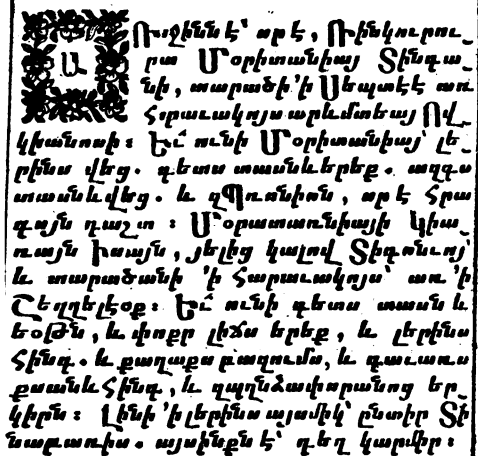 Ա
Ռաջինն է՝ որ է, Ռինկուրու֊
րա Մօրիտանիայ Տինգա֊
նի, տարածի ՚ի Սեպտէէ առ
հրաւակոյս արևմտեայ Ով֊
կիանոսի։ Եւ ունի Մօրիտանիայ՝ լե֊
րինս վեց. գետս տասնևերեք. ազգս
տասնևվեց. և զՊռանիոն, որ է Հրա֊
զայն դաշտ ։ Մօրատառնիայի Կիս֊
ռայն Իսայն, յելից կալով Տիգոնւոյ՝
և տարածանի ՚ի հարաւակոյս՝ առ ՚ի
Շեղղելէօք։ Եւ ունի գետս տասն և
եօթն, և փոքր լիճս երեք, և լերինս
հինգ. և քաղաքս բազումս, և գաւառս
քսանևհինգ, և զպղնձափորանոց եր֊
կիրն։ Լինի ՚ի լերինս այսմիկ՝ ընտիր Տի
նաքառիս. այսինքն է՝ գեղ կարմիր։